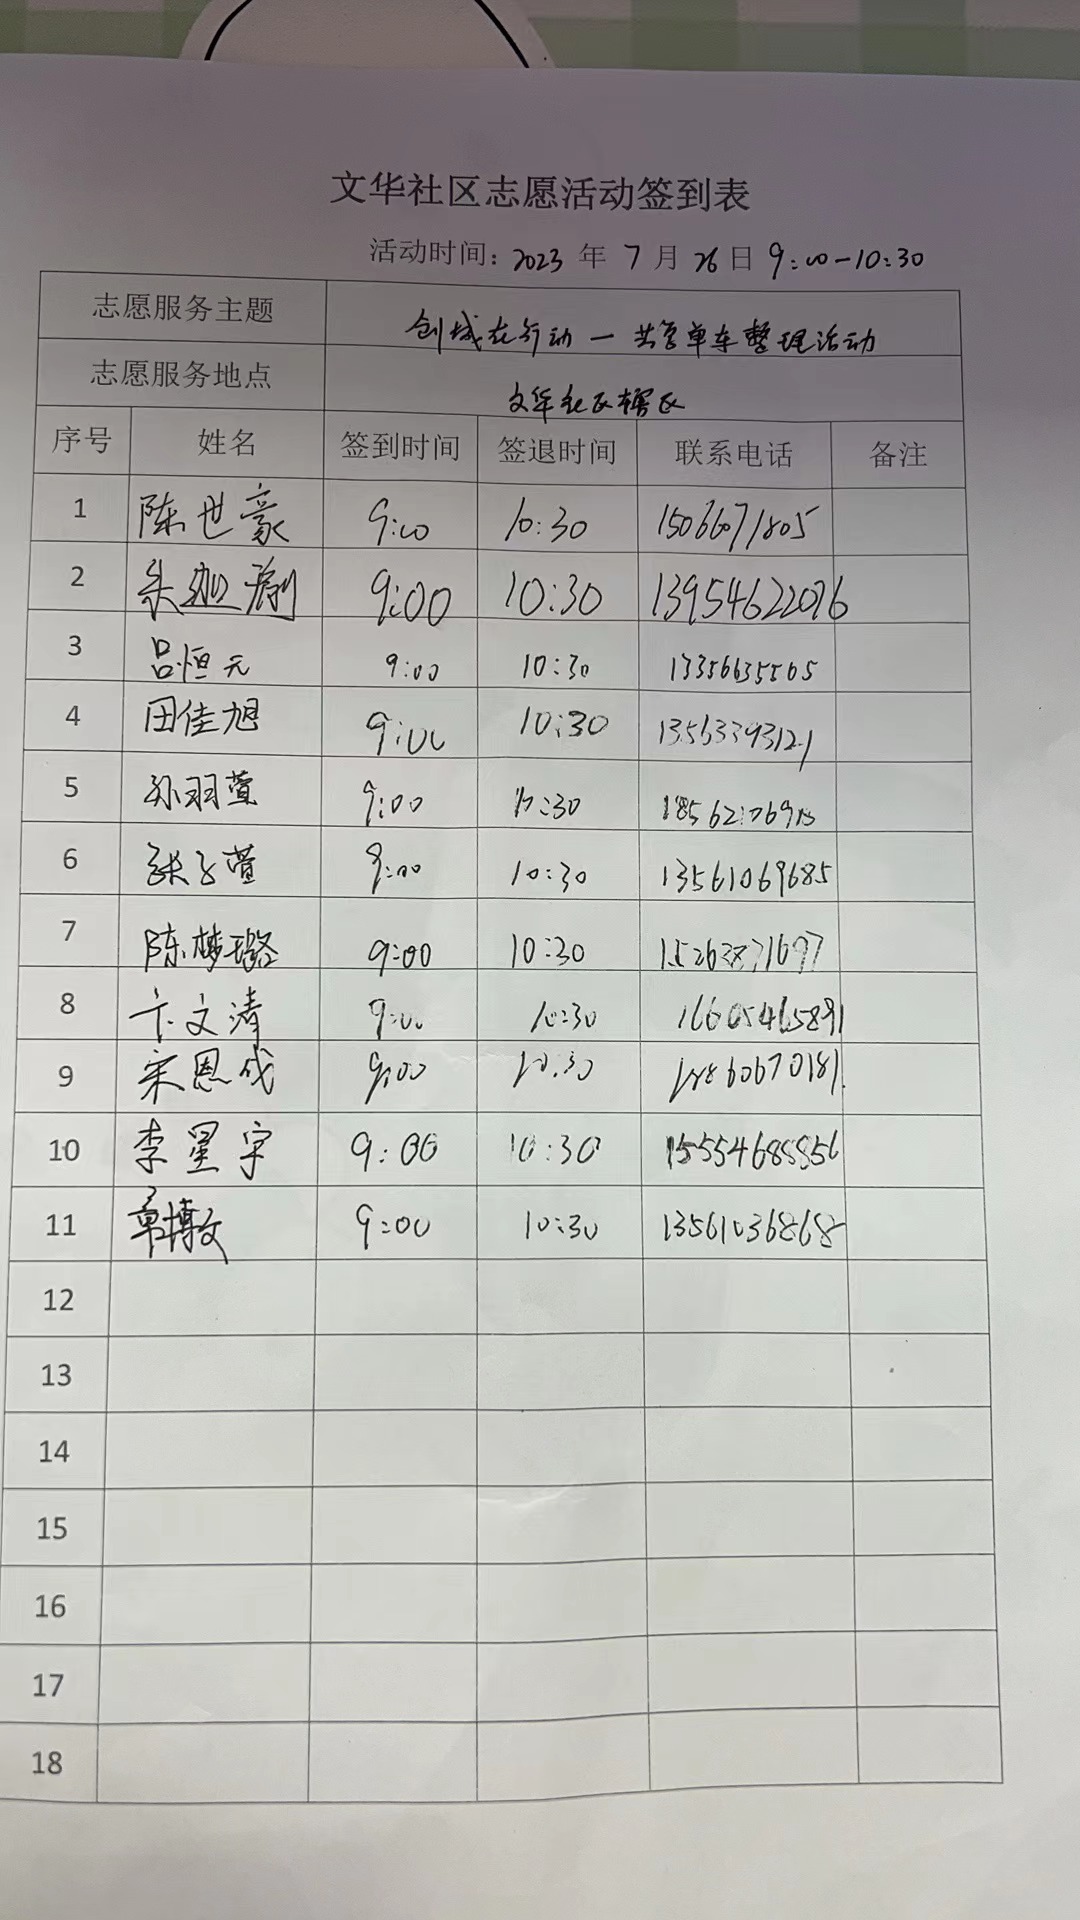 文华社区志愿活动签到表
活动时间：2023 年 7 月 26 日 9:00-10:30
志愿服务主题 创城在行动一共享单车整理活动
志愿服务地点 文华社区辖区
序号 姓名 签到时间 签退时间 联系电话 备注
1 陈世豪 9:00 10:30 15066071805
2 9:00 10:30 13954622076
3 吕恒元 9:00 10:30
4 田佳旭 9:00 10:30
5 孙羽萱 9:00 10:30
6 张子萱 9:00 10:30 13561069685
7 陈梦璐 9:00 10:30 15263871697
8 卞文清 9:00 10:30 16605465891
9 宋恩成 9:00 10:30
10 李星宇 9:00 10:30
11 章博文 9:00 10:30 13561036868
12
13
14
15
16
17
18